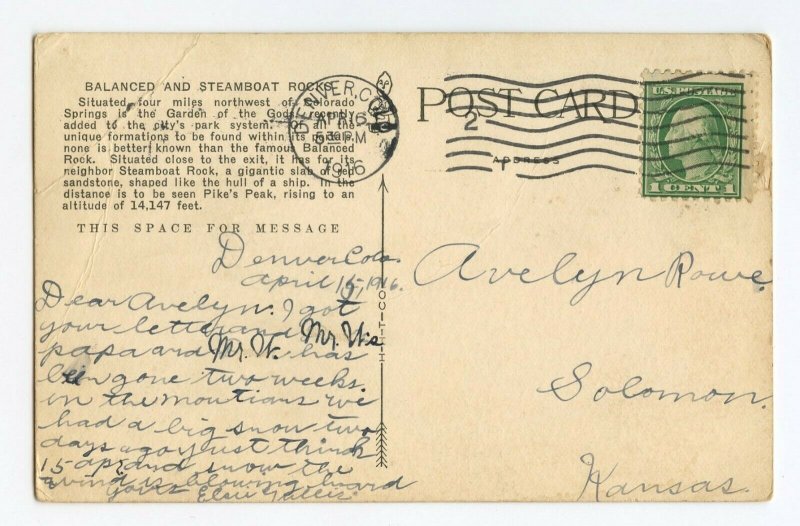 BALANCED AND STEAMBOAT ROCKS
Situated four miles northwest of Colorado
Springs is the Garden of the Gods, recently
added to the city's park system. Of all the
unique formations to be found within its portals,
none is better known than the famous Balanced
Rock. Situated close to the exit, it has for its
neighbor Steamboat Rock, a gigantic slab of red
sandstone, shaped like the hull of a ship. In the
distance is to be seen Pike's Peak, rising to an
altitude of 14,147 feet.
THIS SPACE FOR MESSAGE
DENVER, COLO.
APR 16
PM
1916
POST CARD
2
ADDRESS
1
U.S. POSTAGE
1 CENT 1
H-H-T-CO
Denver Colo.
April 15, 1916.
Dear Avelyn. I got
your letter and
papa and Mr. W. Mr. W's has
been gone two weeks.
in the mountians we
had a big snow two
days ago just think
15 ap and snow the
wind is blowing hard
yours Elsie
Avelyn Rowe.
Solomon.
Kansas.